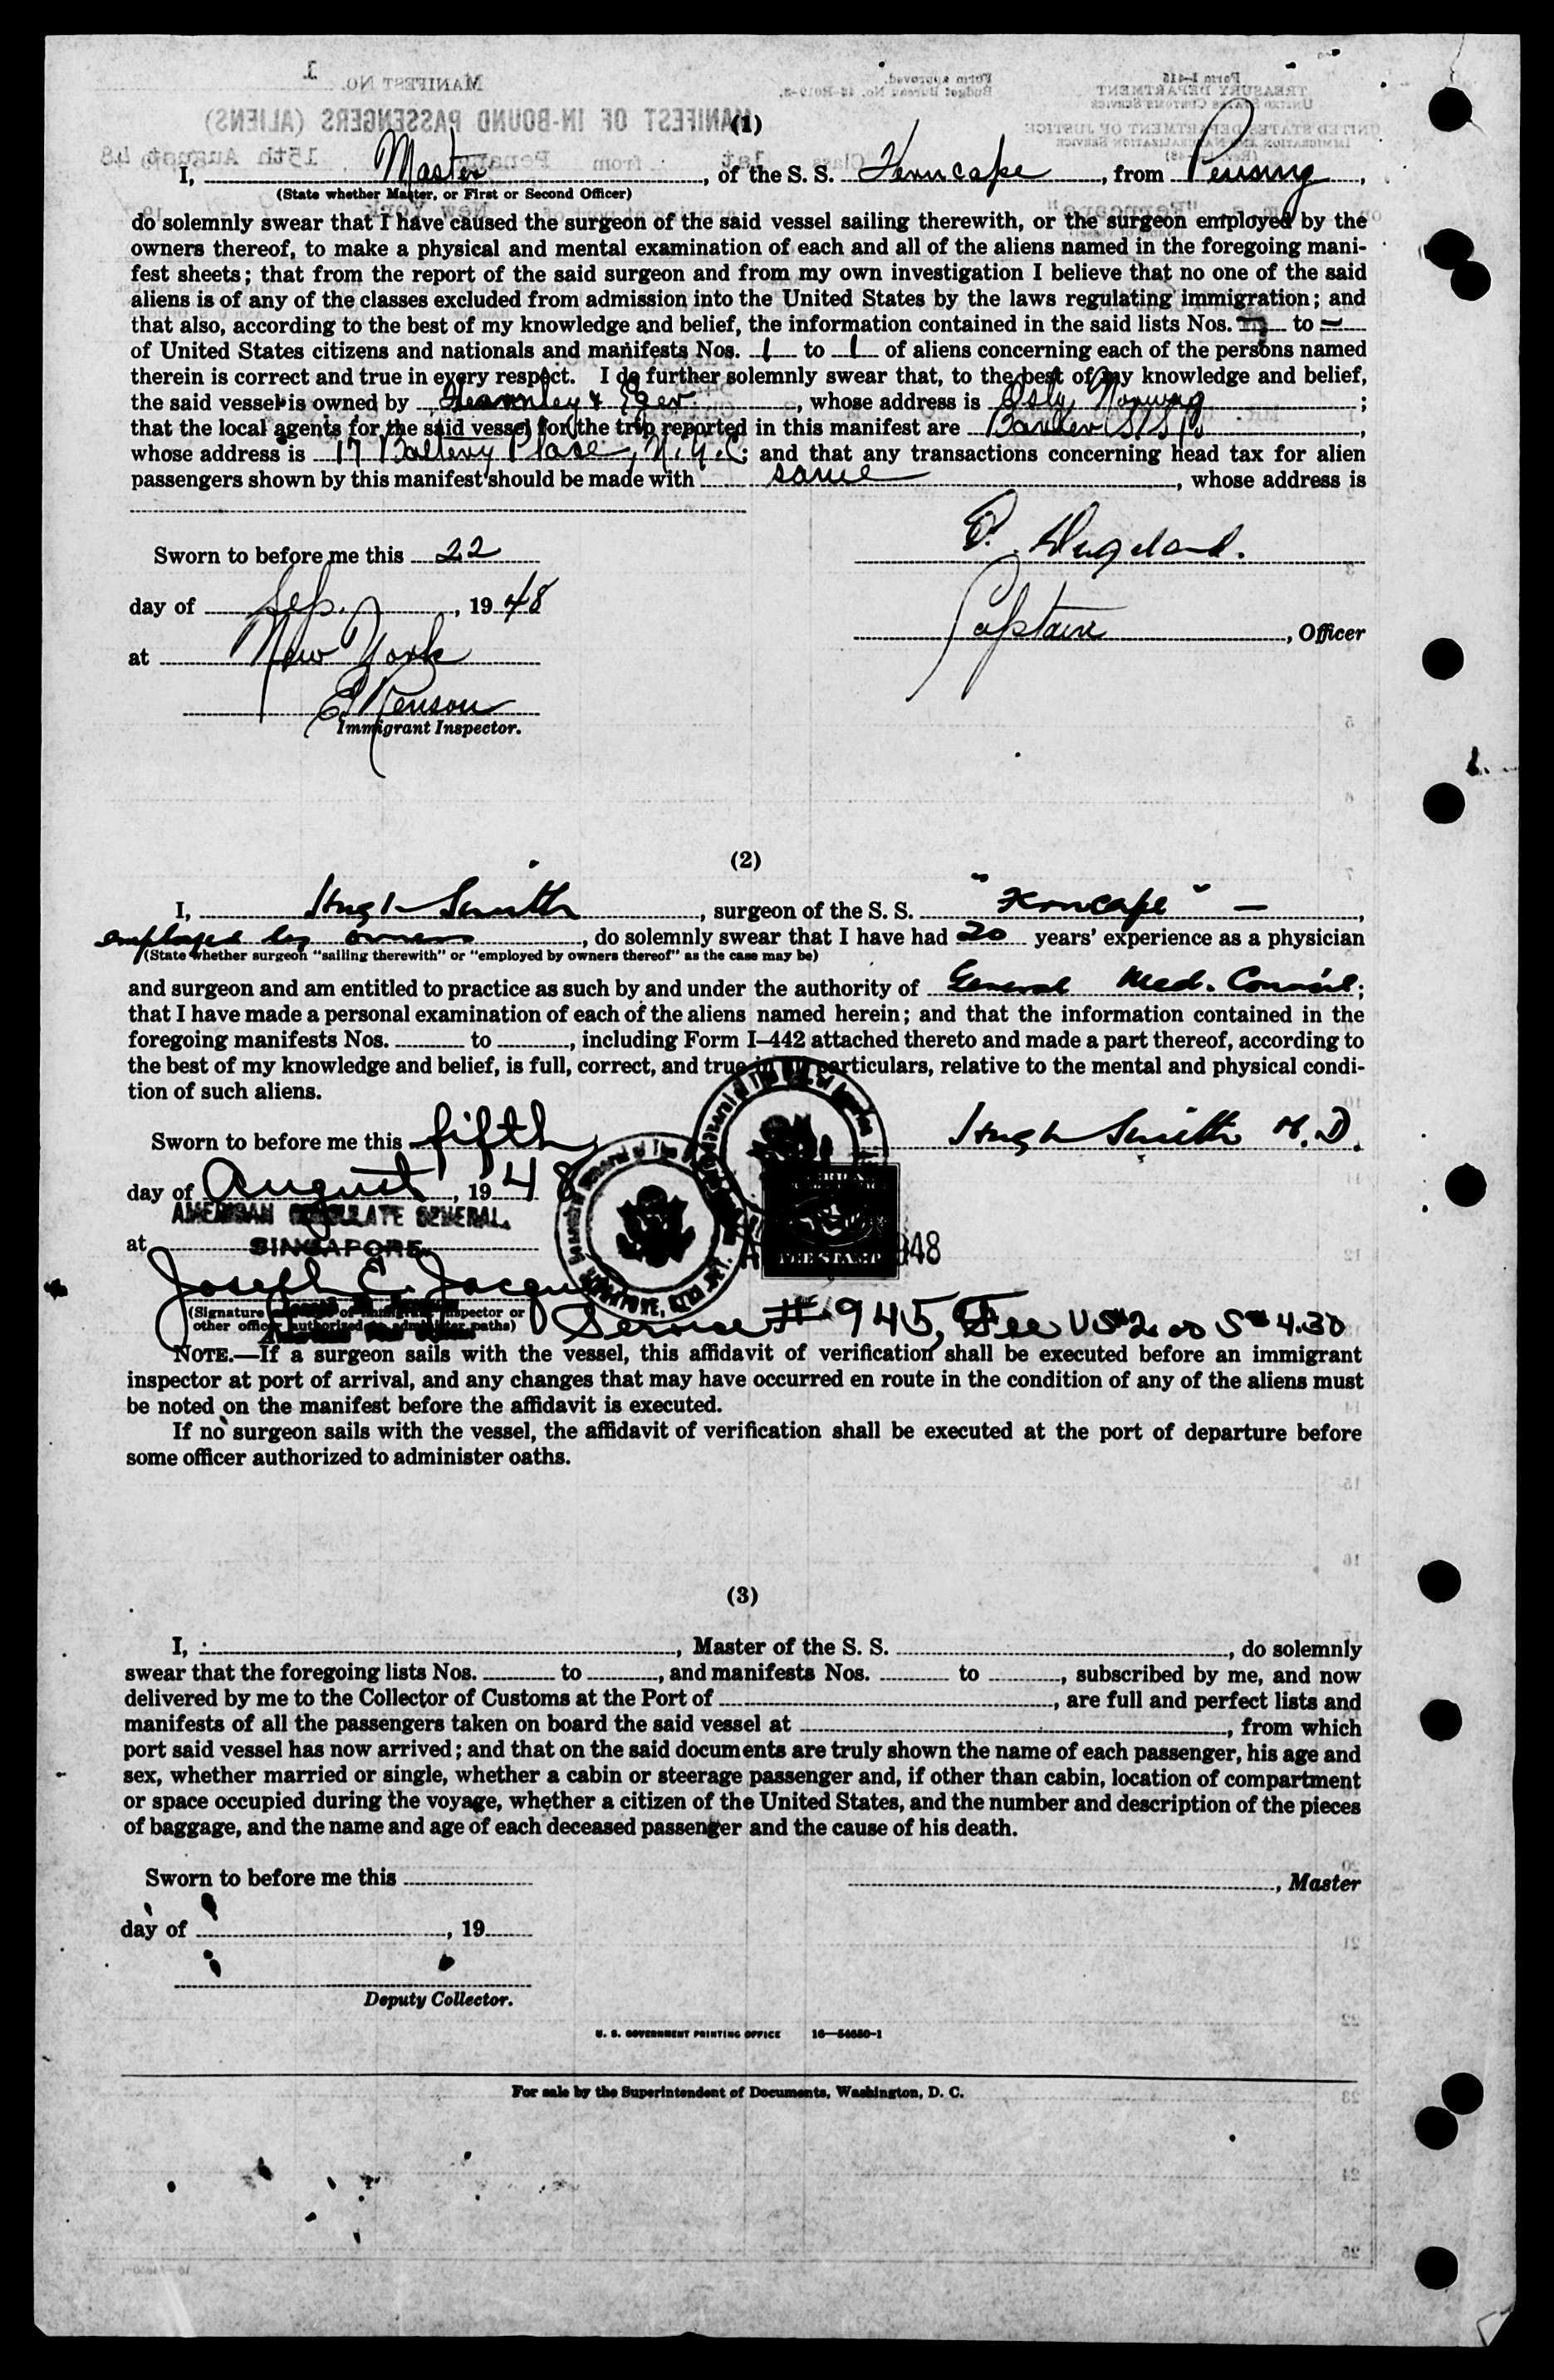 (1)
I, Master, of the S. S. Ferncape, from Penang,
(State whether Master, or First or Second Officer)
do solemnly swear that I have caused the surgeon of the said vessel sailing therewith, or the surgeon employed by the
owners thereof, to make a physical and mental examination of each and all of the aliens named in the foregoing mani-
fest sheets; that from the report of the said surgeon and from my own investigation I believe that no one of the said
aliens is of any of the classes excluded from admission into the United States by the laws regulating immigration; and
that also, according to the best of my knowledge and belief, the information contained in the said lists Nos. - to -
of United States citizens and nationals and manifests Nos. 1 to 1 of aliens concerning each of the persons named
therein is correct and true in every respect. I do further solemnly swear that, to the best of my knowledge and belief,
the said vessel is owned by Fearnley & Eger, whose address is Oslo, Norway;
that the local agents for the said vessel for the trip reported in this manifest are Barber S/S,
whose address is 17 Battery Place, N.Y.C; and that any transactions concerning head tax for alien
passengers shown by this manifest should be made with same, whose address is
Sworn to before me this 22
day of Sep., 1948
Captain, Officer
at New York
Immigrant Inspector.
(2)
I, Hugh Smith, surgeon of the S. S. "Ferncape" -,
employed by owners, do solemnly swear that I have had 20 years' experience as a physician
(State whether surgeon "sailing therewith" or "employed by owners thereof" as the case may be)
and surgeon and am entitled to practice as such by and under the authority of General Med. Council;
that I have made a personal examination of each of the aliens named herein; and that the information contained in the
foregoing manifests Nos. to , including Form I-442 attached thereto and made a part thereof, according to
the best of my knowledge and belief, is full, correct, and true in all particulars, relative to the mental and physical condi-
tion of such aliens.
Sworn to before me this fifth
Hugh Smith M.D.
day of August, 1948
AMERICAN CONSULATE GENERAL,
at SINGAPORE
FEE STAMP
Joseph E. Jacques
(Signature of Immigrant Inspector or
other officer authorized to administer oaths)
Service # 945, Fee US$2.00 S$ 4.30
NOTE.—If a surgeon sails with the vessel, this affidavit of verification shall be executed before an immigrant
inspector at port of arrival, and any changes that may have occurred en route in the condition of any of the aliens must
be noted on the manifest before the affidavit is executed.
If no surgeon sails with the vessel, the affidavit of verification shall be executed at the port of departure before
some officer authorized to administer oaths.
(3)
I, , Master of the S. S. , do solemnly
swear that the foregoing lists Nos. to , and manifests Nos. to , subscribed by me, and now
delivered by me to the Collector of Customs at the Port of , are full and perfect lists and
manifests of all the passengers taken on board the said vessel at , from which
port said vessel has now arrived; and that on the said documents are truly shown the name of each passenger, his age and
sex, whether married or single, whether a cabin or steerage passenger and, if other than cabin, location of compartment
or space occupied during the voyage, whether a citizen of the United States, and the number and description of the pieces
of baggage, and the name and age of each deceased passenger and the cause of his death.
Sworn to before me this
, Master
day of , 19
Deputy Collector.
U. S. GOVERNMENT PRINTING OFFICE 16—54650-1
For sale by the Superintendent of Documents, Washington, D. C.